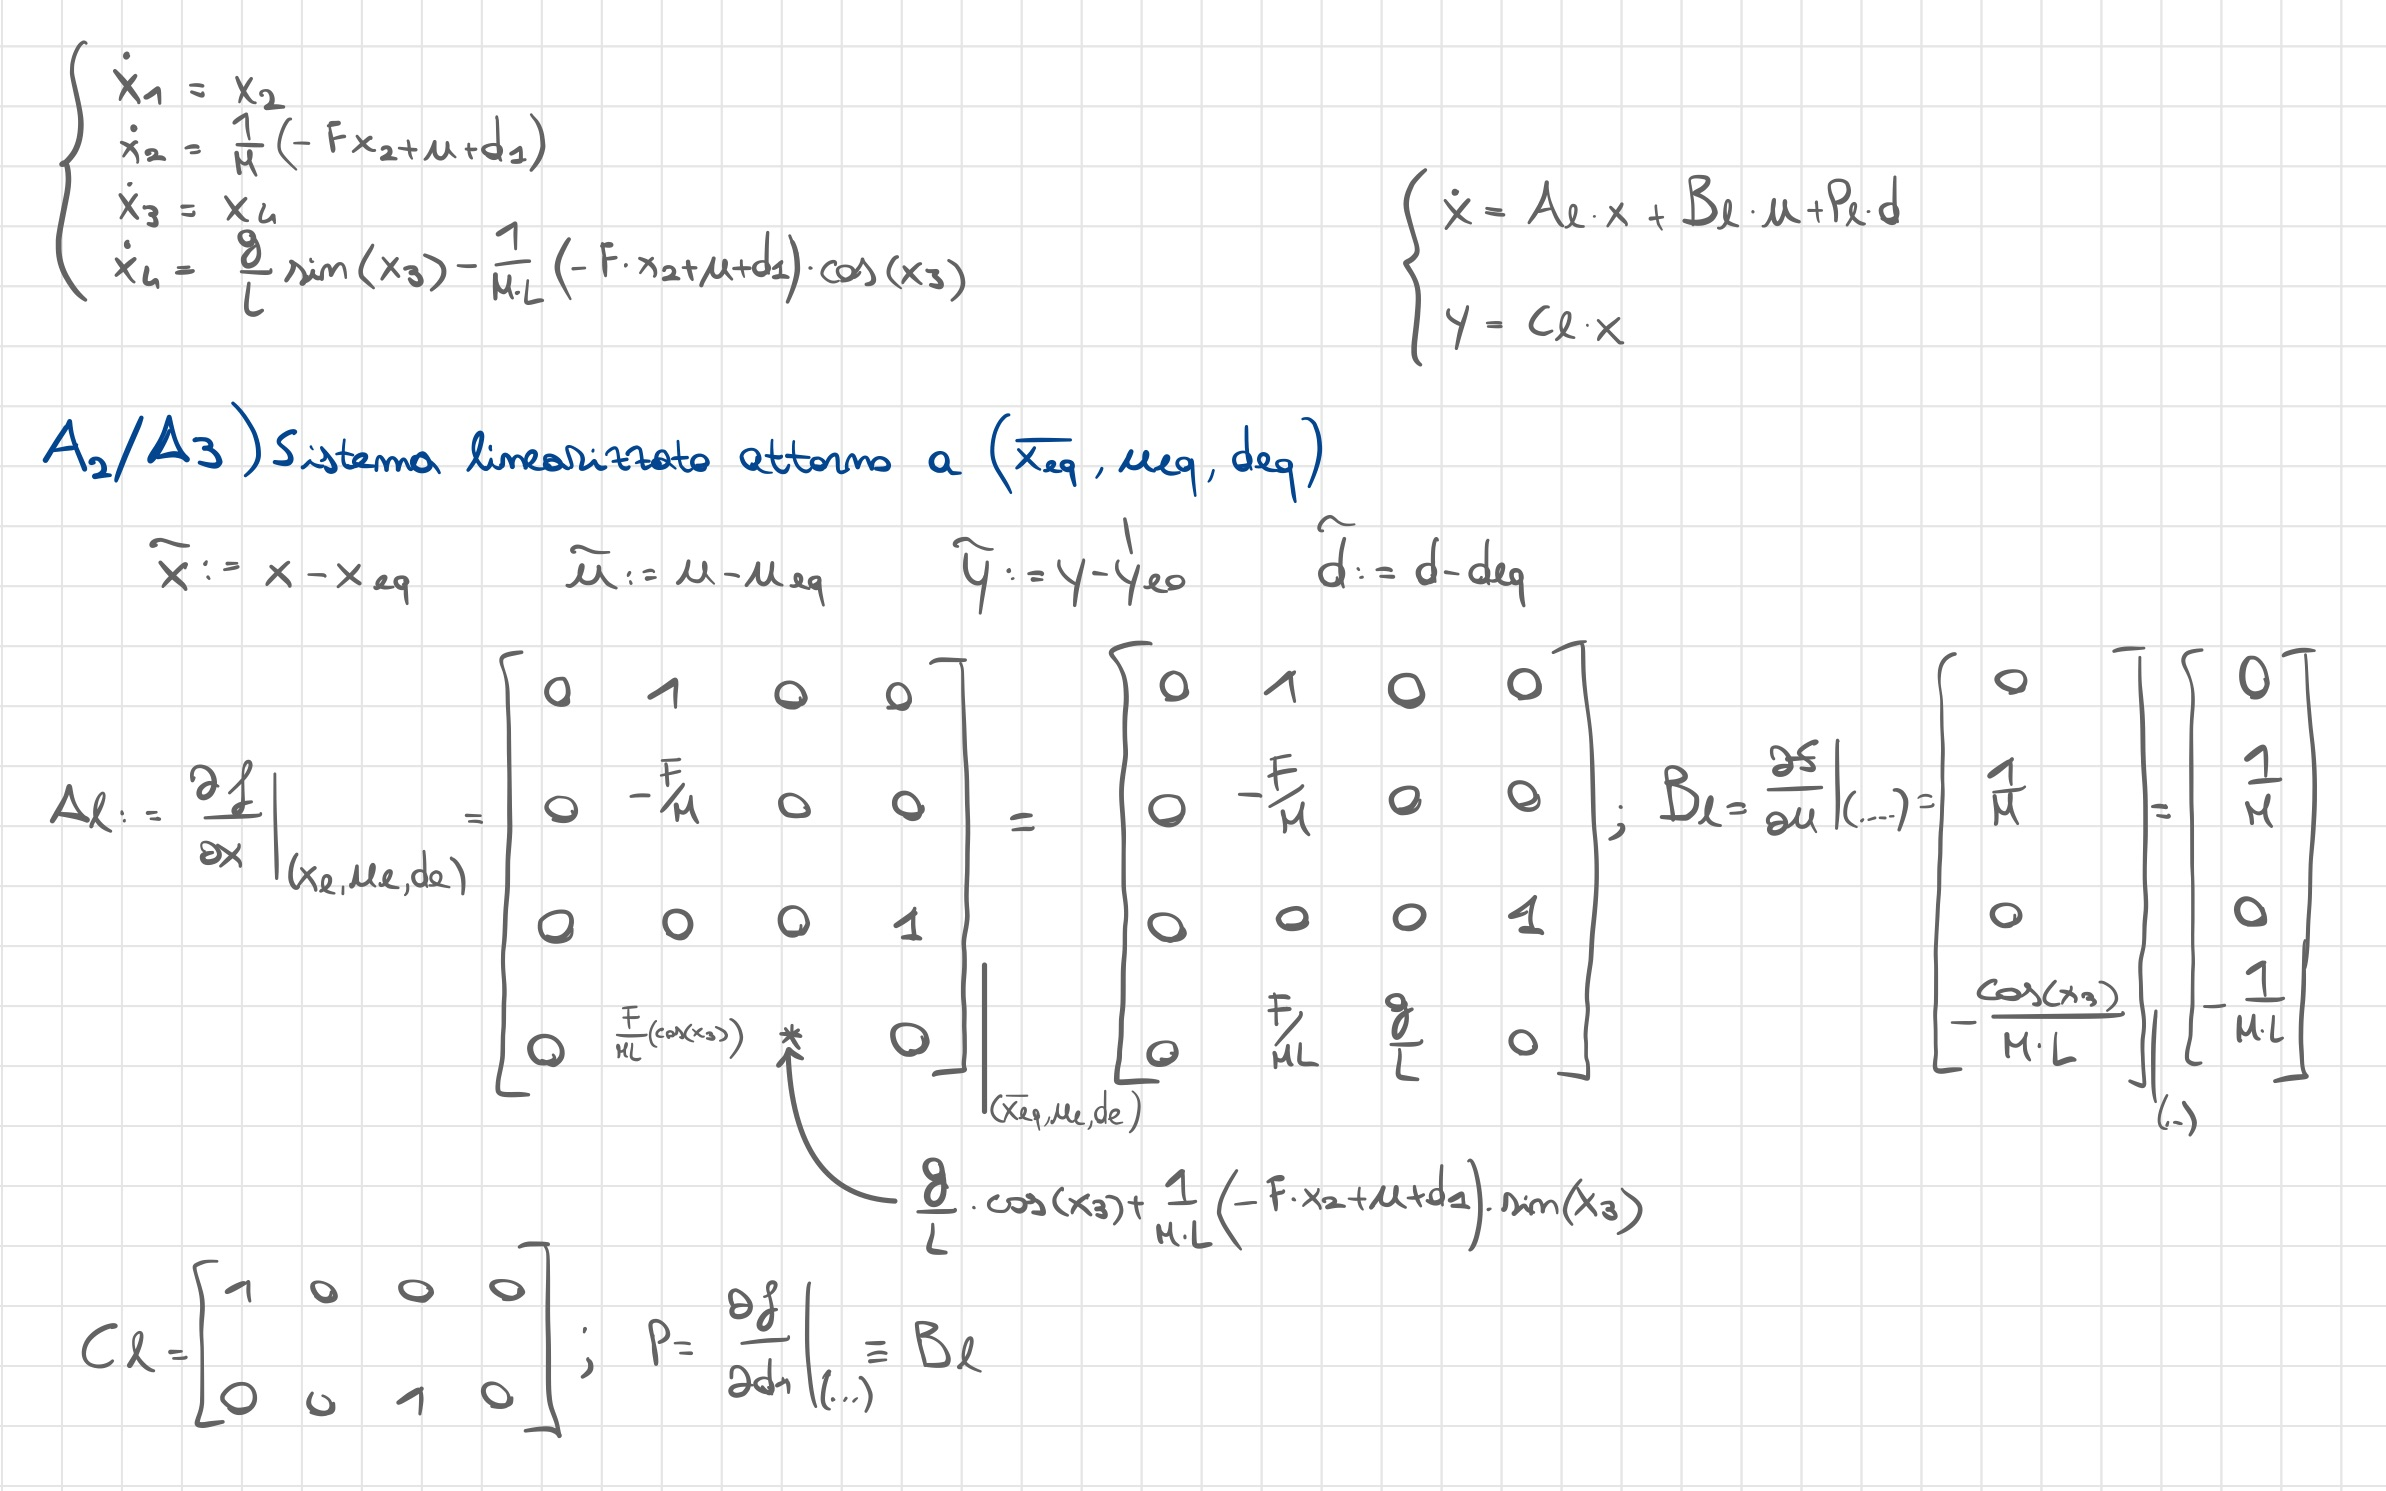 ẋ1 = x2
ẋ2 = 1/M (-Fx2+u+d1)
ẋ3 = x4
ẋ4 = g/L sin(x3) - 1/(M·L) (-F·x2+u+d1)·cos(x3)
ẋ = Aℓ·x + Bℓ·u+Pℓ·d
y = Cℓ·x
A2/A3) Sistema linearizzato attorno a (x̅eq, ueq, deq)
x̃ := x-xeq ũ := u-ueq ỹ := y-yeq d̃ := d-deq
Aℓ := ∂f/∂x |(xe,ue,de) = [0 1 0 0; 0 -F/M 0 0; 0 0 0 1; 0 F/(ML)(cos(x3)) * 0] |(x̅eq,ue,de) = [0 1 0 0; 0 -F/M 0 0; 0 0 0 1; 0 F/ML g/L 0] ; Bℓ = ∂f/∂u |(...) = [0; 1/M; 0; -cos(x3)/(M·L)] |(..) = [0; 1/M; 0; -1/(M·L)]
g/L ·cos(x3)+ 1/(M·L) (-F·x2+u+d1)·sin(x3)
Cℓ = [1 0 0 0; 0 0 1 0] ; P = ∂f/∂d1 |(...) ≡ Bℓ